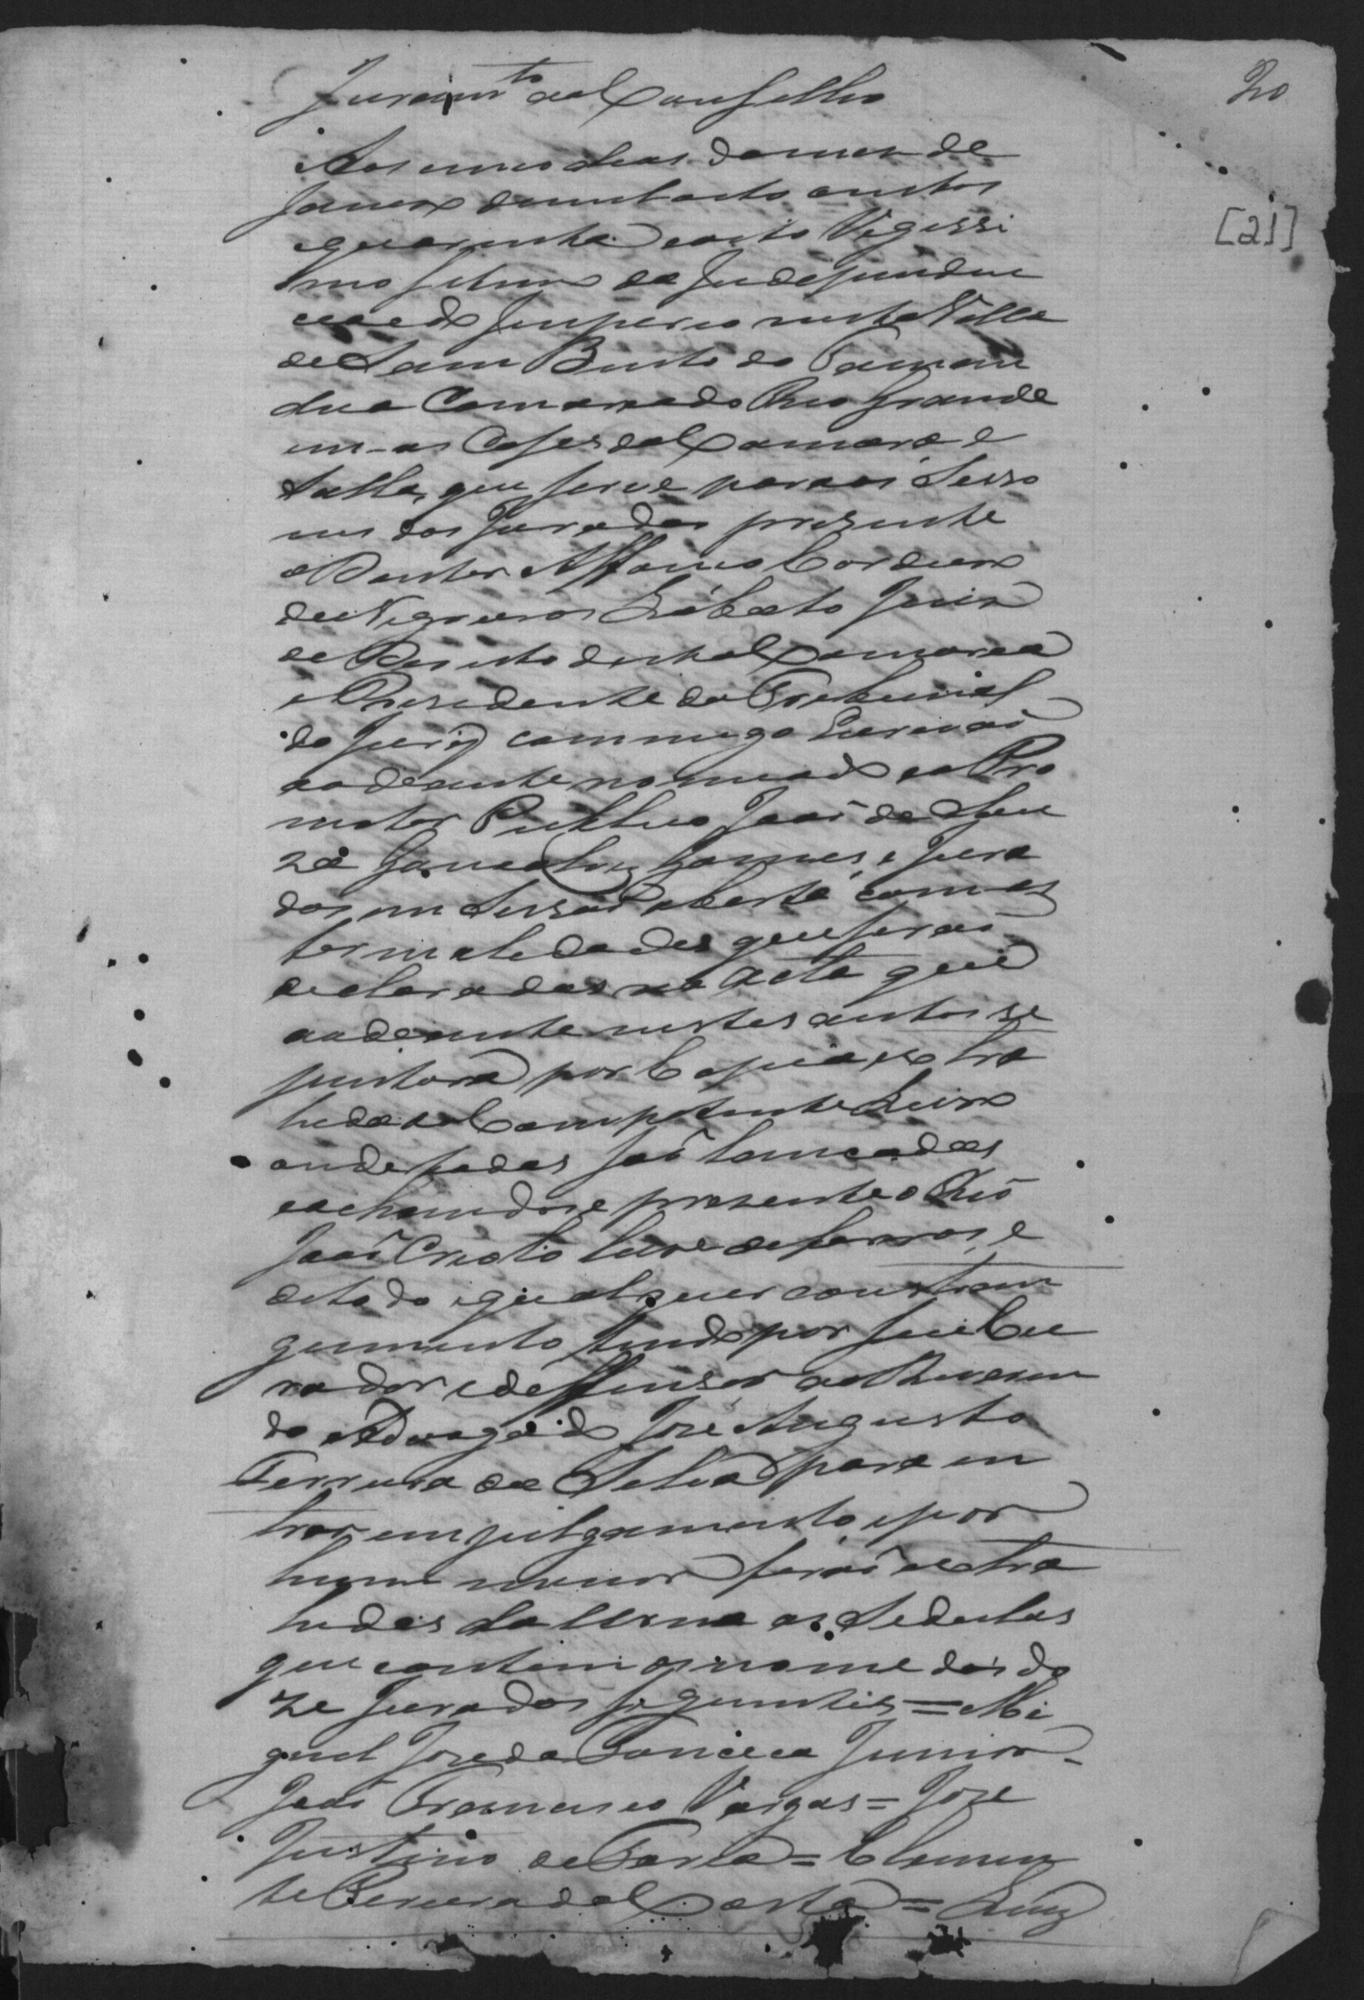 Juram.to do Conselho
20
Aos cinco dias do mes de
Janeiro de mil oito centos
[21]
e quarenta e oito Vigessi
mo setimo da Independen
cia e do Imperio nesta Villa
de Sam Bento do Taman
dua Comarca do Rio Grande
em as Casas da Camara e
Salla, que serve para as Sesso
ens dos Jurados presente
o Doutor Affonso Cordeiro
de Negreiros Lobato Juiz
de Direito desta Comarca
e Presidente do Tribunal
do Jury commigo Escrivaõ
ao deante nomeado e o Pro
motor Publico Joaõ de Sou
za Gonsalves Gomes, e Jura
dos em Sessaõ aberta com as
formalidades que seraõ
declaradas na Acta que
ao deante nestes autos se
juntará por Copia extra
hida do Competente Livro
onde todas saõ lançadas
e achandose presente o Réo
Joaõ Crioto livre de ferros, e
de todo e qualquer constran
gimento tendo por seu Cu
rador e deffensor ao Reveren
do Advogado José Augusto
Ferreira da Silva para en
trar em julgamento, e por
hum menor foraõ extra
hidas da Urna as Sedulas
que contem os nome dos do
ze Jurados seguintes = Mi
guel Jose da Fonceca Junior =
Joaõ Francisco Vargas = Jose
Justino de Faria = Clemen
te Pereira da Costa = Luiz